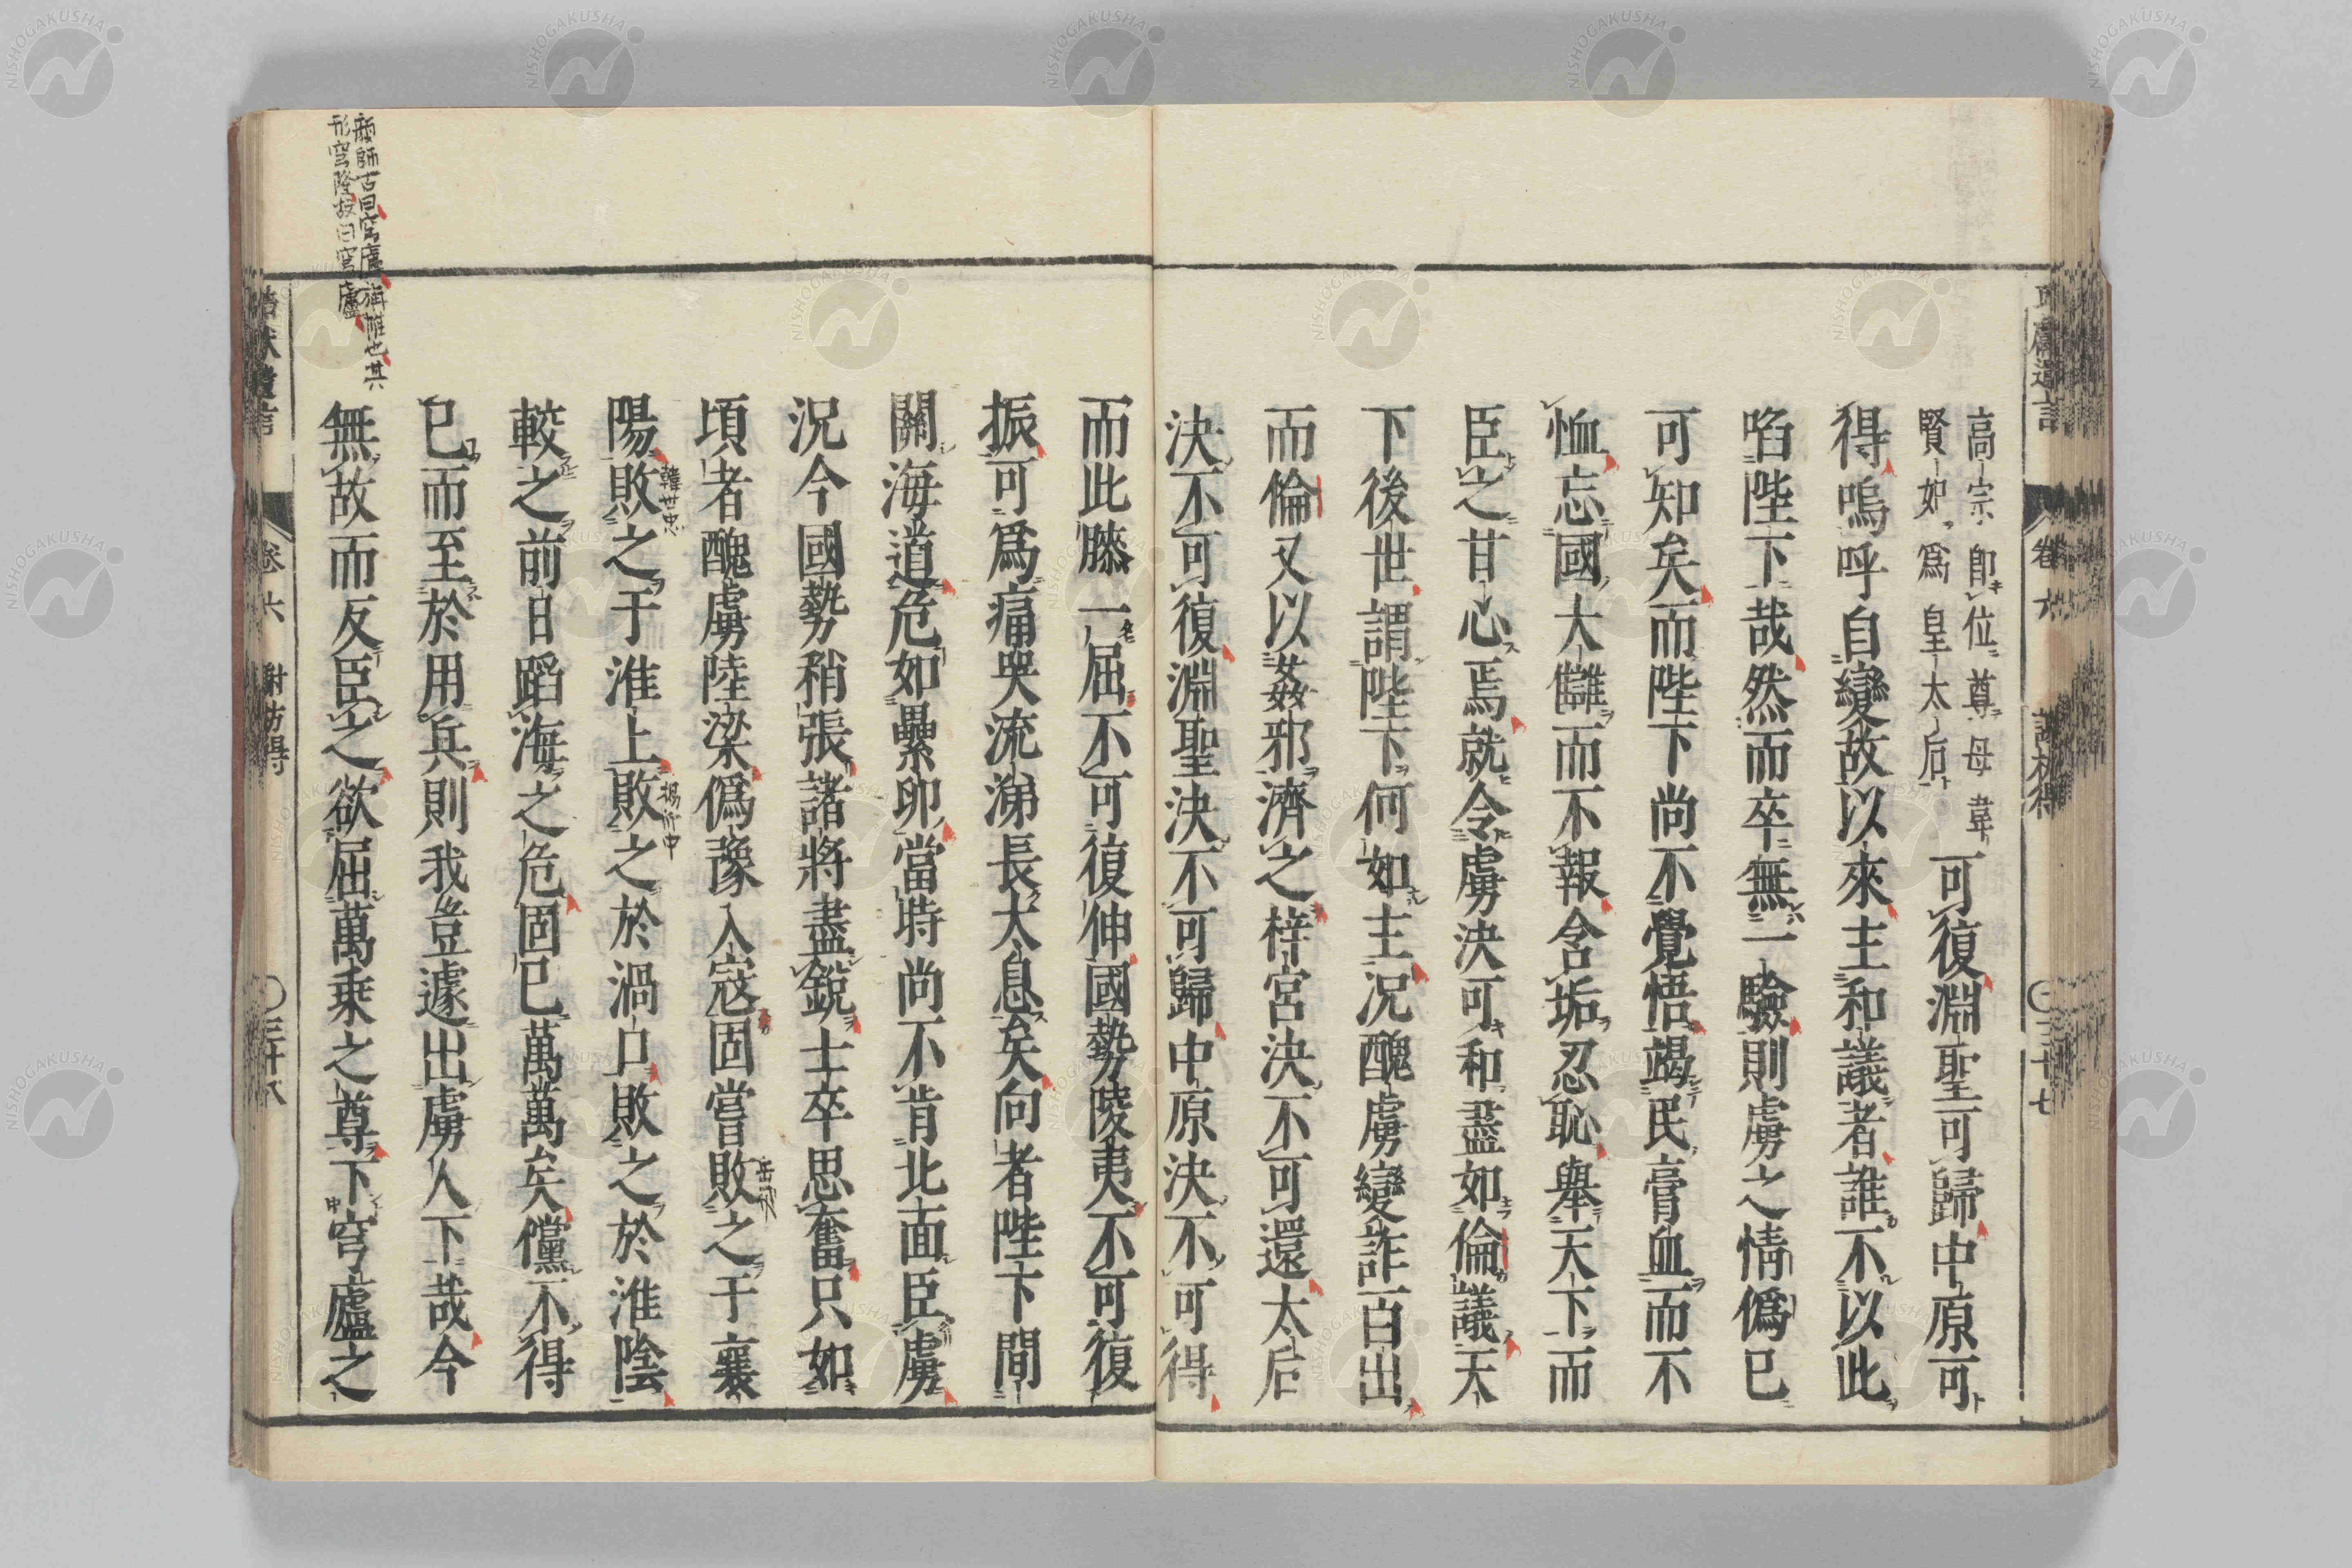 高宗即位尊母韋
賢妃爲皇太后
可復淵聖可歸中原可
得嗚呼自變故以來主和議者誰不以此
啗陛下哉然而卒無一驗則虜之情僞已
可知矣而陛下尚不覺悟竭民膏血而不
恤忘國大讎而不報含垢忍恥舉天下而
臣之甘心焉就令虜決可和盡如倫議天
下後世謂陛下何如主況醜虜變詐百出
而倫又以姦邪濟之梓宮決不可還太后
決不可復淵聖決不可歸中原決不可得
而此膝一屈不可復伸國勢陵夷不可復
振可爲痛哭流涕長大息矣向者陛下間
關海道危如纍卵當時尚不肯北面臣虜
況今國勢稍張諸將盡銳士卒思奮只如
頃者醜虜陸梁僞豫入寇固嘗敗之于襄
岳飛
陽敗之于淮上敗之於渦口敗之於淮陰
韓世忠
較之前日蹈海之危固已萬萬矣儻不得
已而至於用兵則我豈遽出虜人下哉今
無故而反臣之欲屈萬乘之尊下穹廬之
顏師古曰穹廬旃帳也其
形穹隆故曰穹廬
卷六
謝枋得
三十七
卷六
謝枋得
三十八
NISHOGAKUSHA